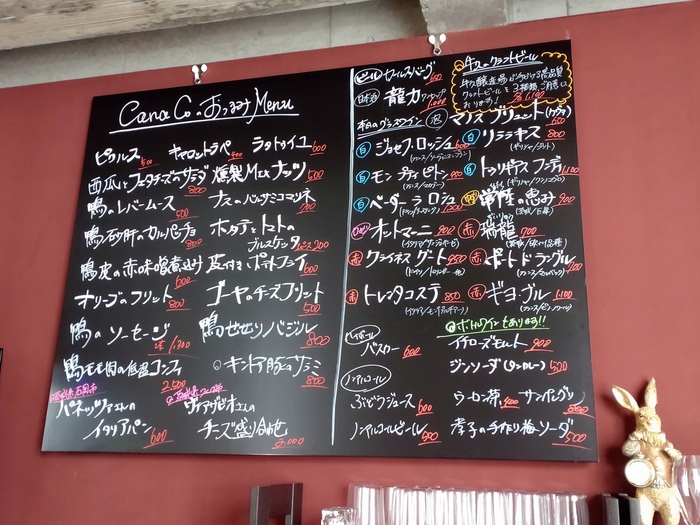 Cana Co. おつまみ Menu
ピクルス 500
キャロットラペ 400
ラタトゥイユ 600
西瓜とフェタチーズのサラダ 800
燻製Mixナッツ 500
鴨のレバームース 500
ナスのバルサミコマリネ 700
鴨砂肝のカルパッチョ 800
ホタテとトマトの
ブルスケッタ 200
鴨皮の赤味噌煮込み 600
皮付きポテトフライ 600
オリーブのフリット 800
ゴーヤのチーズフリット 500
鴨のソーセージ 1,700
鴨せせりバジル 800
鴨モモ肉の低温コンフィ 2,500
キントア豚のサラミ 800
パネッツァさんの
イタリアパン 600
ヴィアザビオさんの
チーズ盛り合わせ
ビール
日本酒 龍力 1,000
牛久のクラフトビール
クラフトビールを3種類ご用意
おります! 各1,100
本日のグラスワイン
泡 マノス ブリュット(カヴァ) 650
白 ジョセフ・ロッシュ 600
白 リラキス 800
白 モンプティピトン 900
白 トゥリギアス フンディ 1,100
白 ベーダーラロシュ 1,200
常陸の恵み 900
オットマーニ 900
赤 瑞龍 700
赤 クライネスゲート 950
赤 ポートドラングル 700
赤 トレンタコステ 850
赤 ギヨ・ブル 1,100
@ボトルワインもあります!!
ハイボール
バスカー 600
イチローズモルト 900
ジンソーダ(タンカレー) 500
ノンアルコール
ぶどうジュース 600
ウーロン茶 400
サンペレグリノ
ノンアルコールビール 500
孝子の手作り梅ソーダ 500